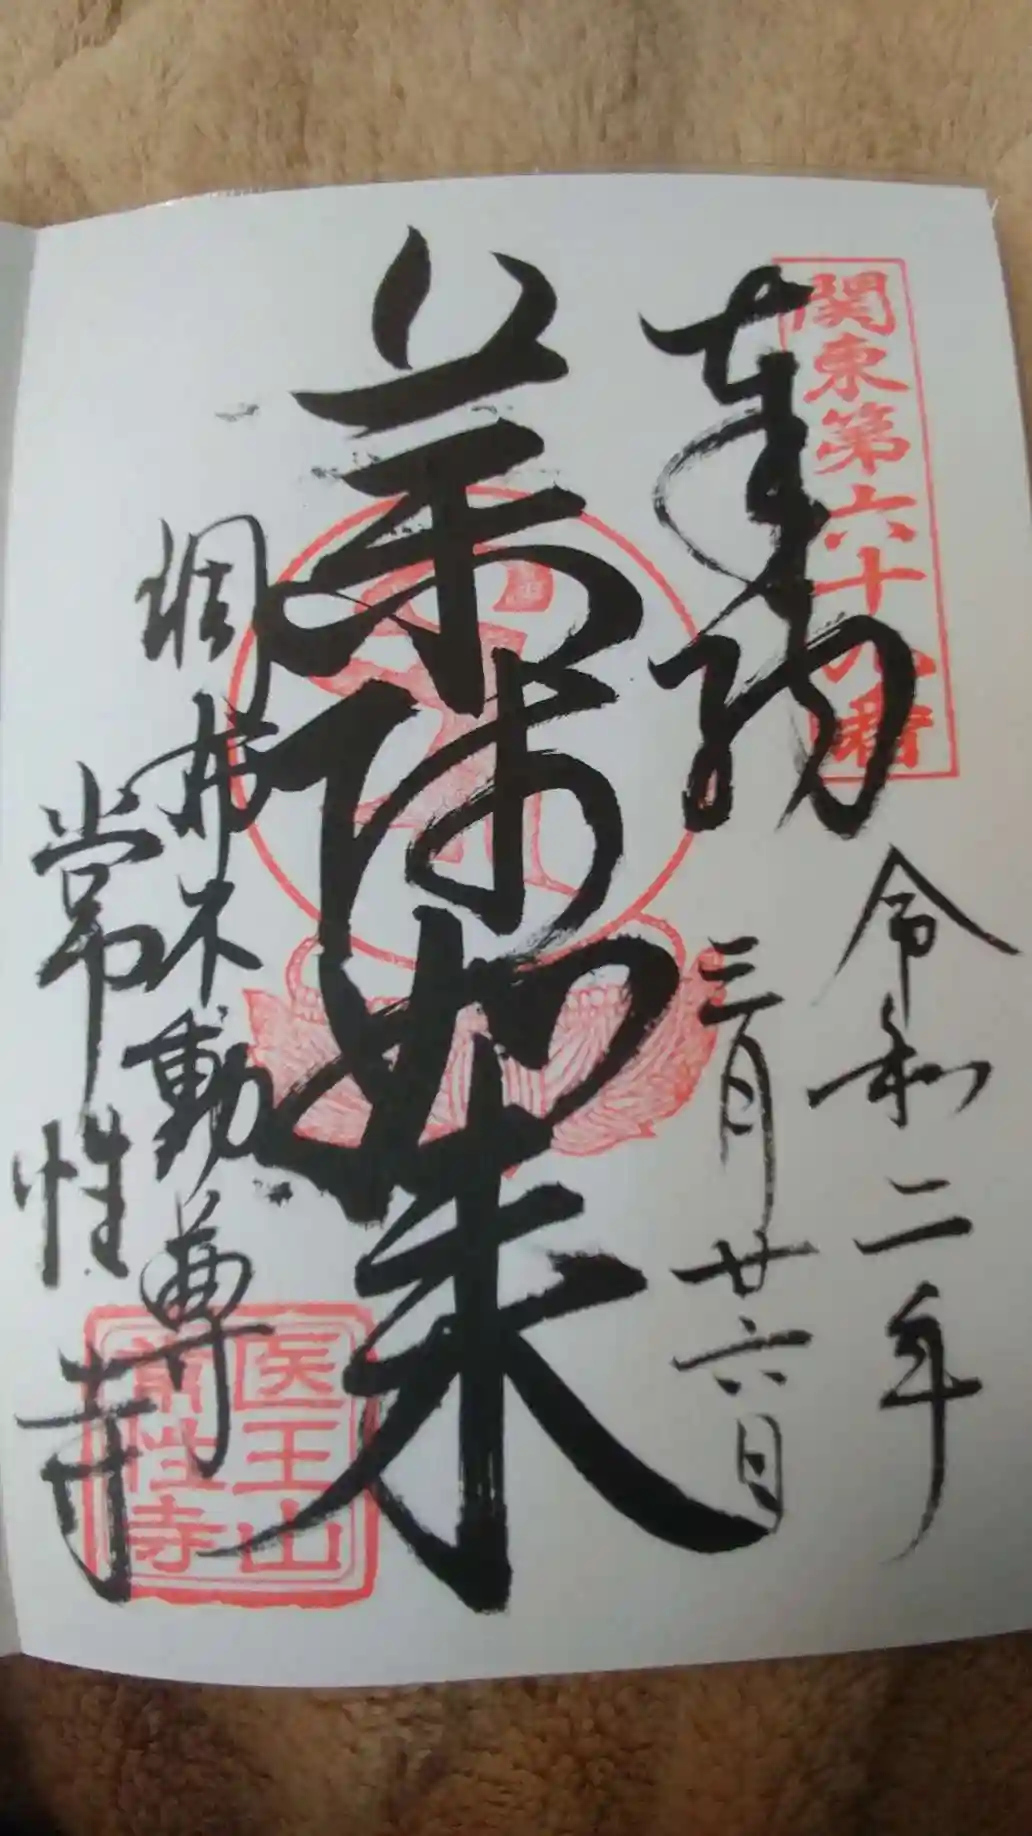 関東第六十九番
奉拝
令和二年
三月廿六日
薬師如来
調布不動尊
常性寺
医王山
常性寺